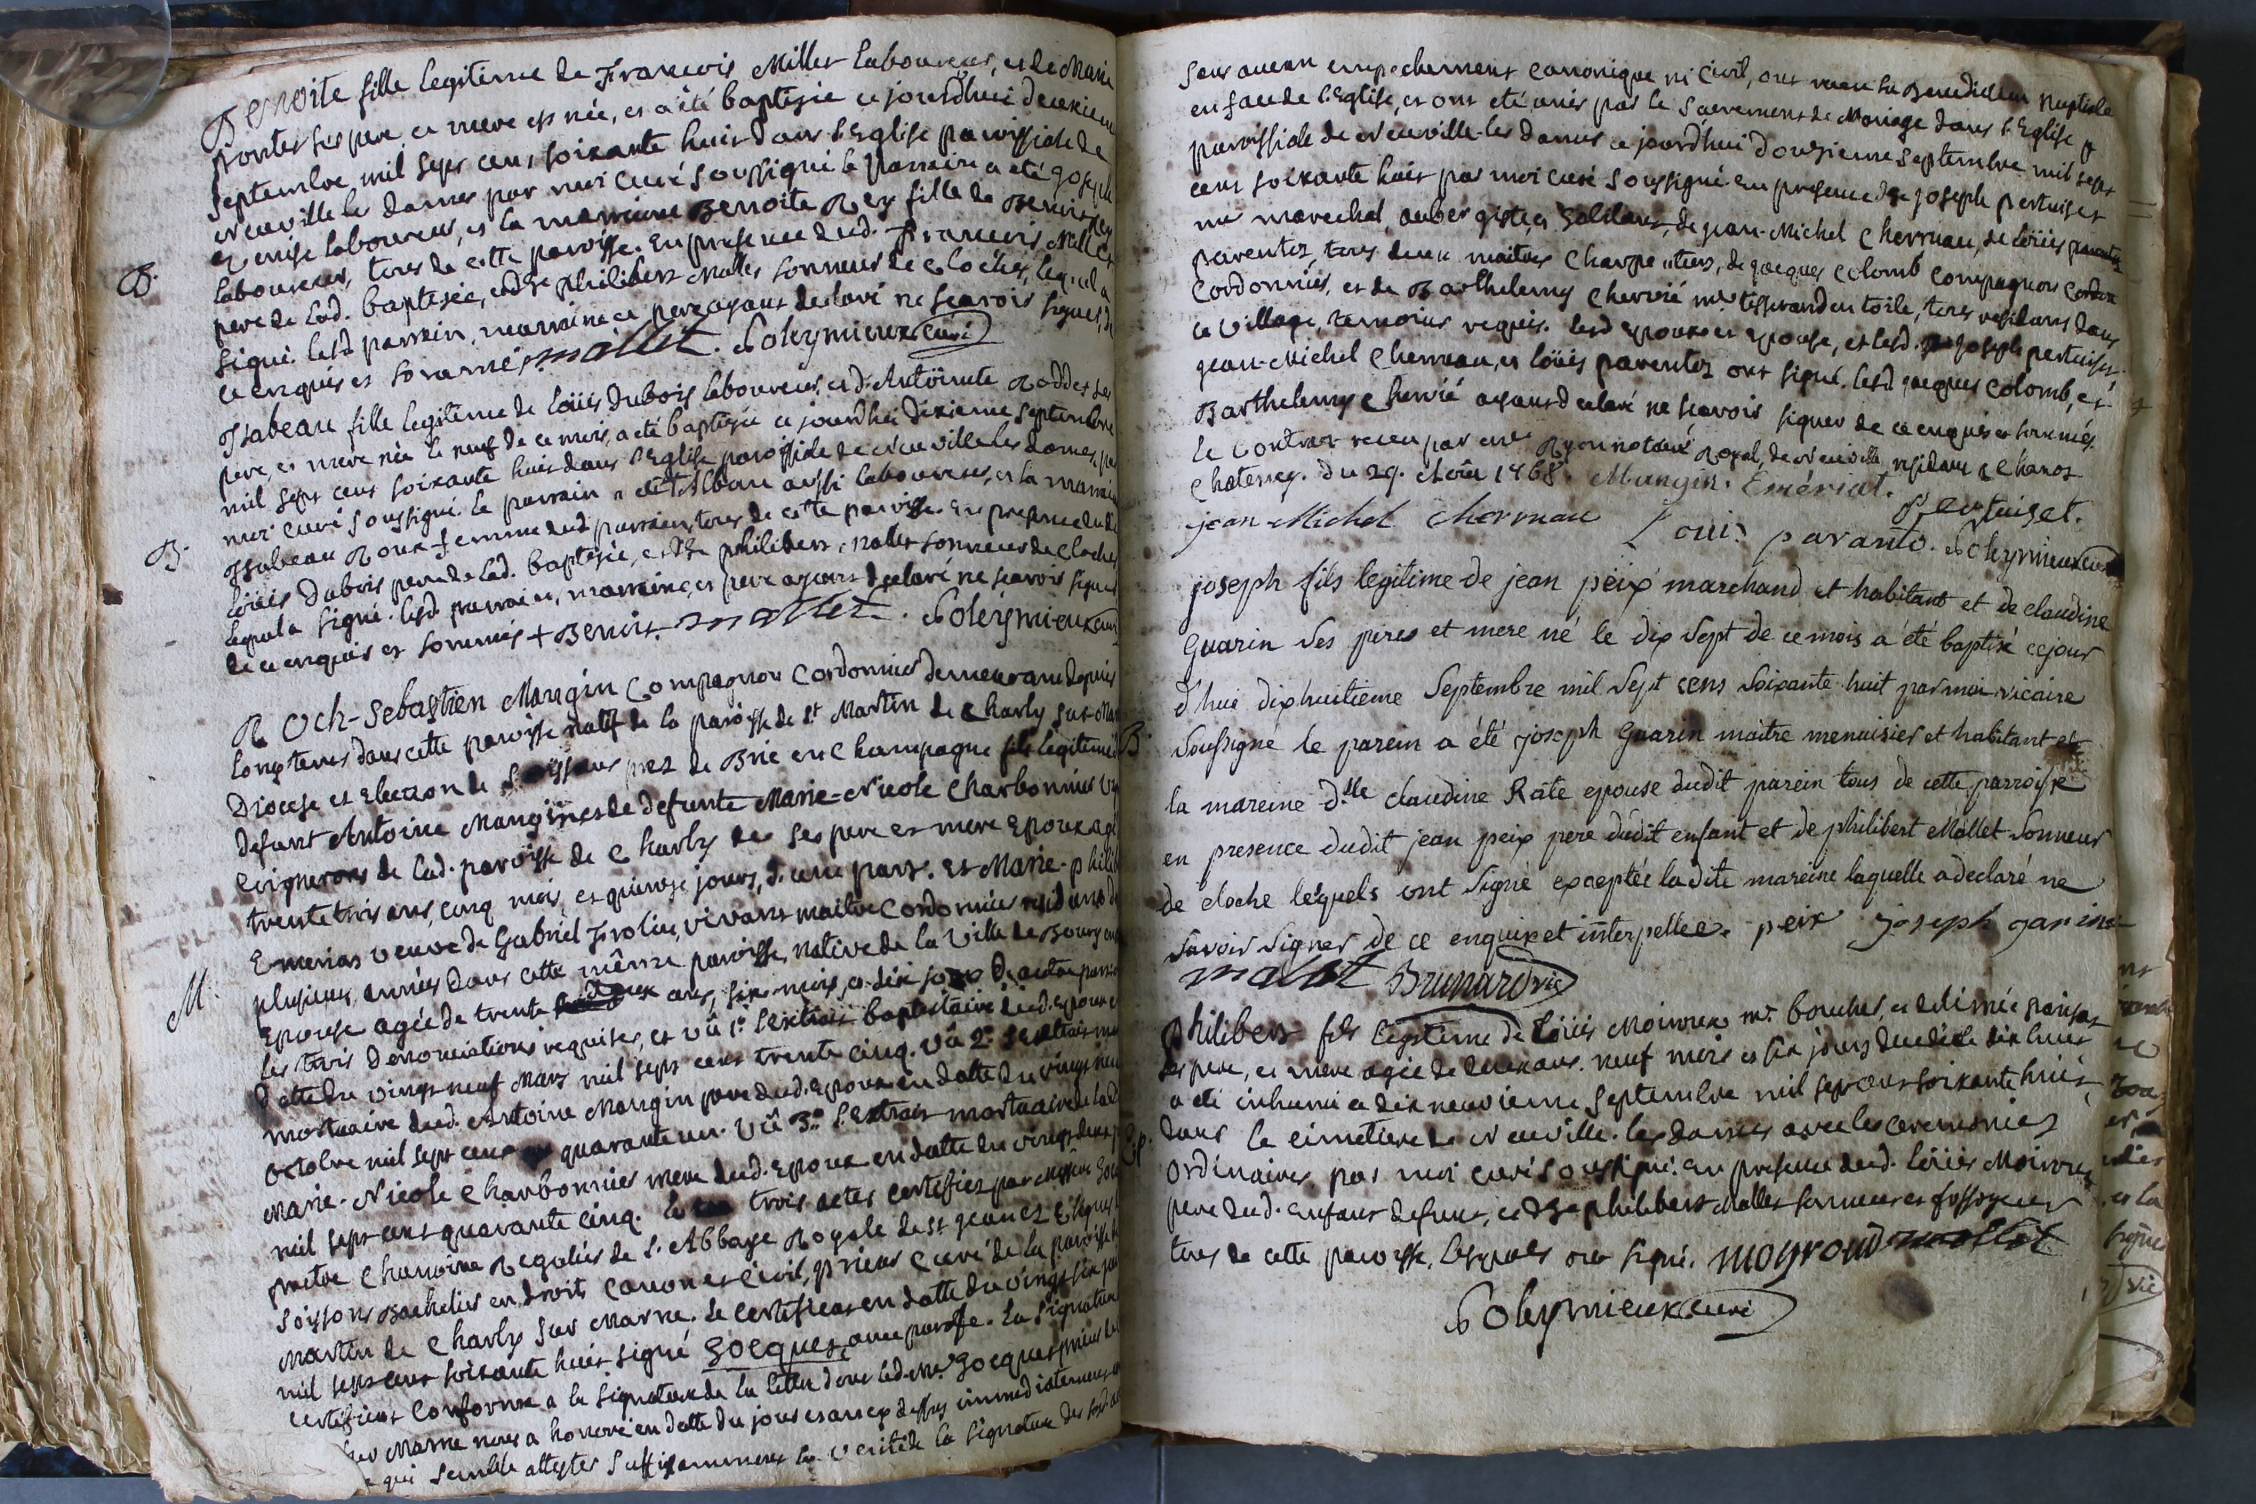 Benoite fille legitime de François Millet laboureur, et de Marie
pontet ses pere, et mere est née, et a été baptisée ce jourdhui deuxieme
septembre mil sept cent soixante huit dans l'Eglise paroissiale de
neuville les dames par moi curé soussigné le parrain a été joseph
laboureur, et la marraine Benoite Rey fille de Benoit Rey
laboureur, tous de cette paroisse. En presence dud. François Millet
B.
pere de lad. baptisée, et de philibert Mallet sonneur de cloches, lequel a
signé. lesd parrain, marraine et pere ayant declaré ne scavoir signer, de
ce enquis et sommés mallet. Poleymieux curé
Isabeau fille legitime de Loüis Dubois laboureur, et d'Antoinette Roddet ses
pere, et mere née le neuf de ce mois, a été baptisée ce jourdhui dixieme septembre
mil sept cent soixante huit dans l'Eglise paroissiale de neuville les dames, par
moi curé soussigné. le parrain a été Alban aussi laboureur, et la marraine
B.
Isabeau Roux femme dud parrain, tous de cette paroisse. En presence dudit
Loüis Dubois pere de lad. baptisée, et de philibert Mallet sonneur de cloches
lequel a signé. lesd parrain, marraine, et pere ayant declaré ne scavoir signer
de ce enquis et sommés + Benoit mallet. Poleymieux curé
Roch-Sebastien Mangin Compagnon Cordonnier demeurant depuis
longtems dans cette paroisse natif de la paroisse de St Martin de Charly sur Marne
Diocese et Election de Soissons prez de Brie en Champagne fils legitime de
defunt Antoine Mangin et de defunte Marie-Nicole Charbonnier
vignerons de lad. paroisse de Charly ses pere et mere Epoux agé
trente trois ans, cinq mois, et quinze jours, d'une part. et Marie-philib
Emerias veuve de Gabriel Frolin, vivant maitre Cordonnier residant de
plusieurs années dans cette même paroisse, native de la Ville de Bourg en
M.
Epouse agée de trente deux ans, six mois, et dix jours D'autre part
les trois Denonciations requises, et vû 1º l'extrait baptistaire dud. Epoux en
datte du vingt neuf Mars mil sept cent trente cinq. vû 2º l'extrait
mortuaire dud. Antoine Mangin pere dud. Epoux en datte du vingt neuf
octobre mil sept cent quarante un. Vû 3º l'extrait mortuaire de lad
Marie-Nicole Charbonnier mere dud. Epoux en datte du vingt deux
mil sept cent quarante cinq. les trois actes certifiez par Messire
pretre Chanoine Regulier de l'Abbaye Royale de St jean
Soissons Bachelier en droit canon et civil, prieur curé de la paroisse
Martin de Charly sur Marne. le certificat en datte du vingt six
mil sept cent soixante huit signé Jocquet, avec parafe. La signature
certificat Conforme a la signature de la lettre dont led. Me Jocquet prieur
Marne nous a honoré en datte du jour et an cy dessus immediatement
qui semble attester suffisamment la verité de la signature des
sans aucun empechement canonique ni civil, ont receu la Benediction nuptiale
en face de l'Eglise, et ont été unis par le sacrement de Mariage dans l'Eglise
paroissiale de neuville-les dames ce jourdhui douzieme septembre mil sept
cent soixante huit par moi curé soussigné en presence de joseph pertuiset
me marechal, aubergiste, de jean-Michel Cherruau, de Loüis parentez
parentez, tous deux maitres Charpentiers, de jacques Colomb compagnon
Cordonnier, et de Barthelemy Chervié me tisserand en toile, tous residans dans
ce Village, temoins requis. lesd epoux et epouse, et lesd. joseph pertuiset
jean-Michel Cherruau, et Loüis parentez ont signé. lesd jacques Colomb, et
Barthelemy Chervié ayant declaré ne scavoir signer de ce enquis et sommés.
le Contrat receu par me Ryon notaire Royal, de neuville, resident a Chanoz
Chatenay. du 29. Août 1768. Mangin. Emériat.
Pertuiset.
jean-Michel Cherruau Louis paranto. Poleymieux curé
joseph fils legitime de jean peix marchand et habitant et de claudine
Guarin ses peres et mere né le dix sept de ce mois a été baptisé cejour
d'hui dixhuitieme Septembre mil sept cens soixante huit par moi vicaire
B
soussigné le parein a été joseph Guarin maitre menuisier et habitant et
la mareine d.lle claudine Rate epouse dudit parein tous de cette parroisse
en presence dudit jean peix pere dudit enfant et de philibert Mallet sonneur
de cloche lesquels ont signé exceptée ladite mareine laquelle a declaré ne
savoir signer de ce enquise et interpellee. peix joseph garin
mallet Brunard vic
philibert fils legitime de Loüis Moirou me boucher, et
ses pere, et mere agé de deux ans neuf mois et six jours decedé le dix huit
a été inhumé ce dix neuvieme septembre mil sept cent soixante huit
dans le cimetiere de neuville-les dames avec les ceremonies
ordinaires par moi curé soussigné. En presence dud. Loüis Moiroux
pere dud. enfant defunt, et de philibert Mallet sonneur et fossoyeur
tous de cette paroisse. lesquels ont signé. moyroud mallet
Poleymieux curé